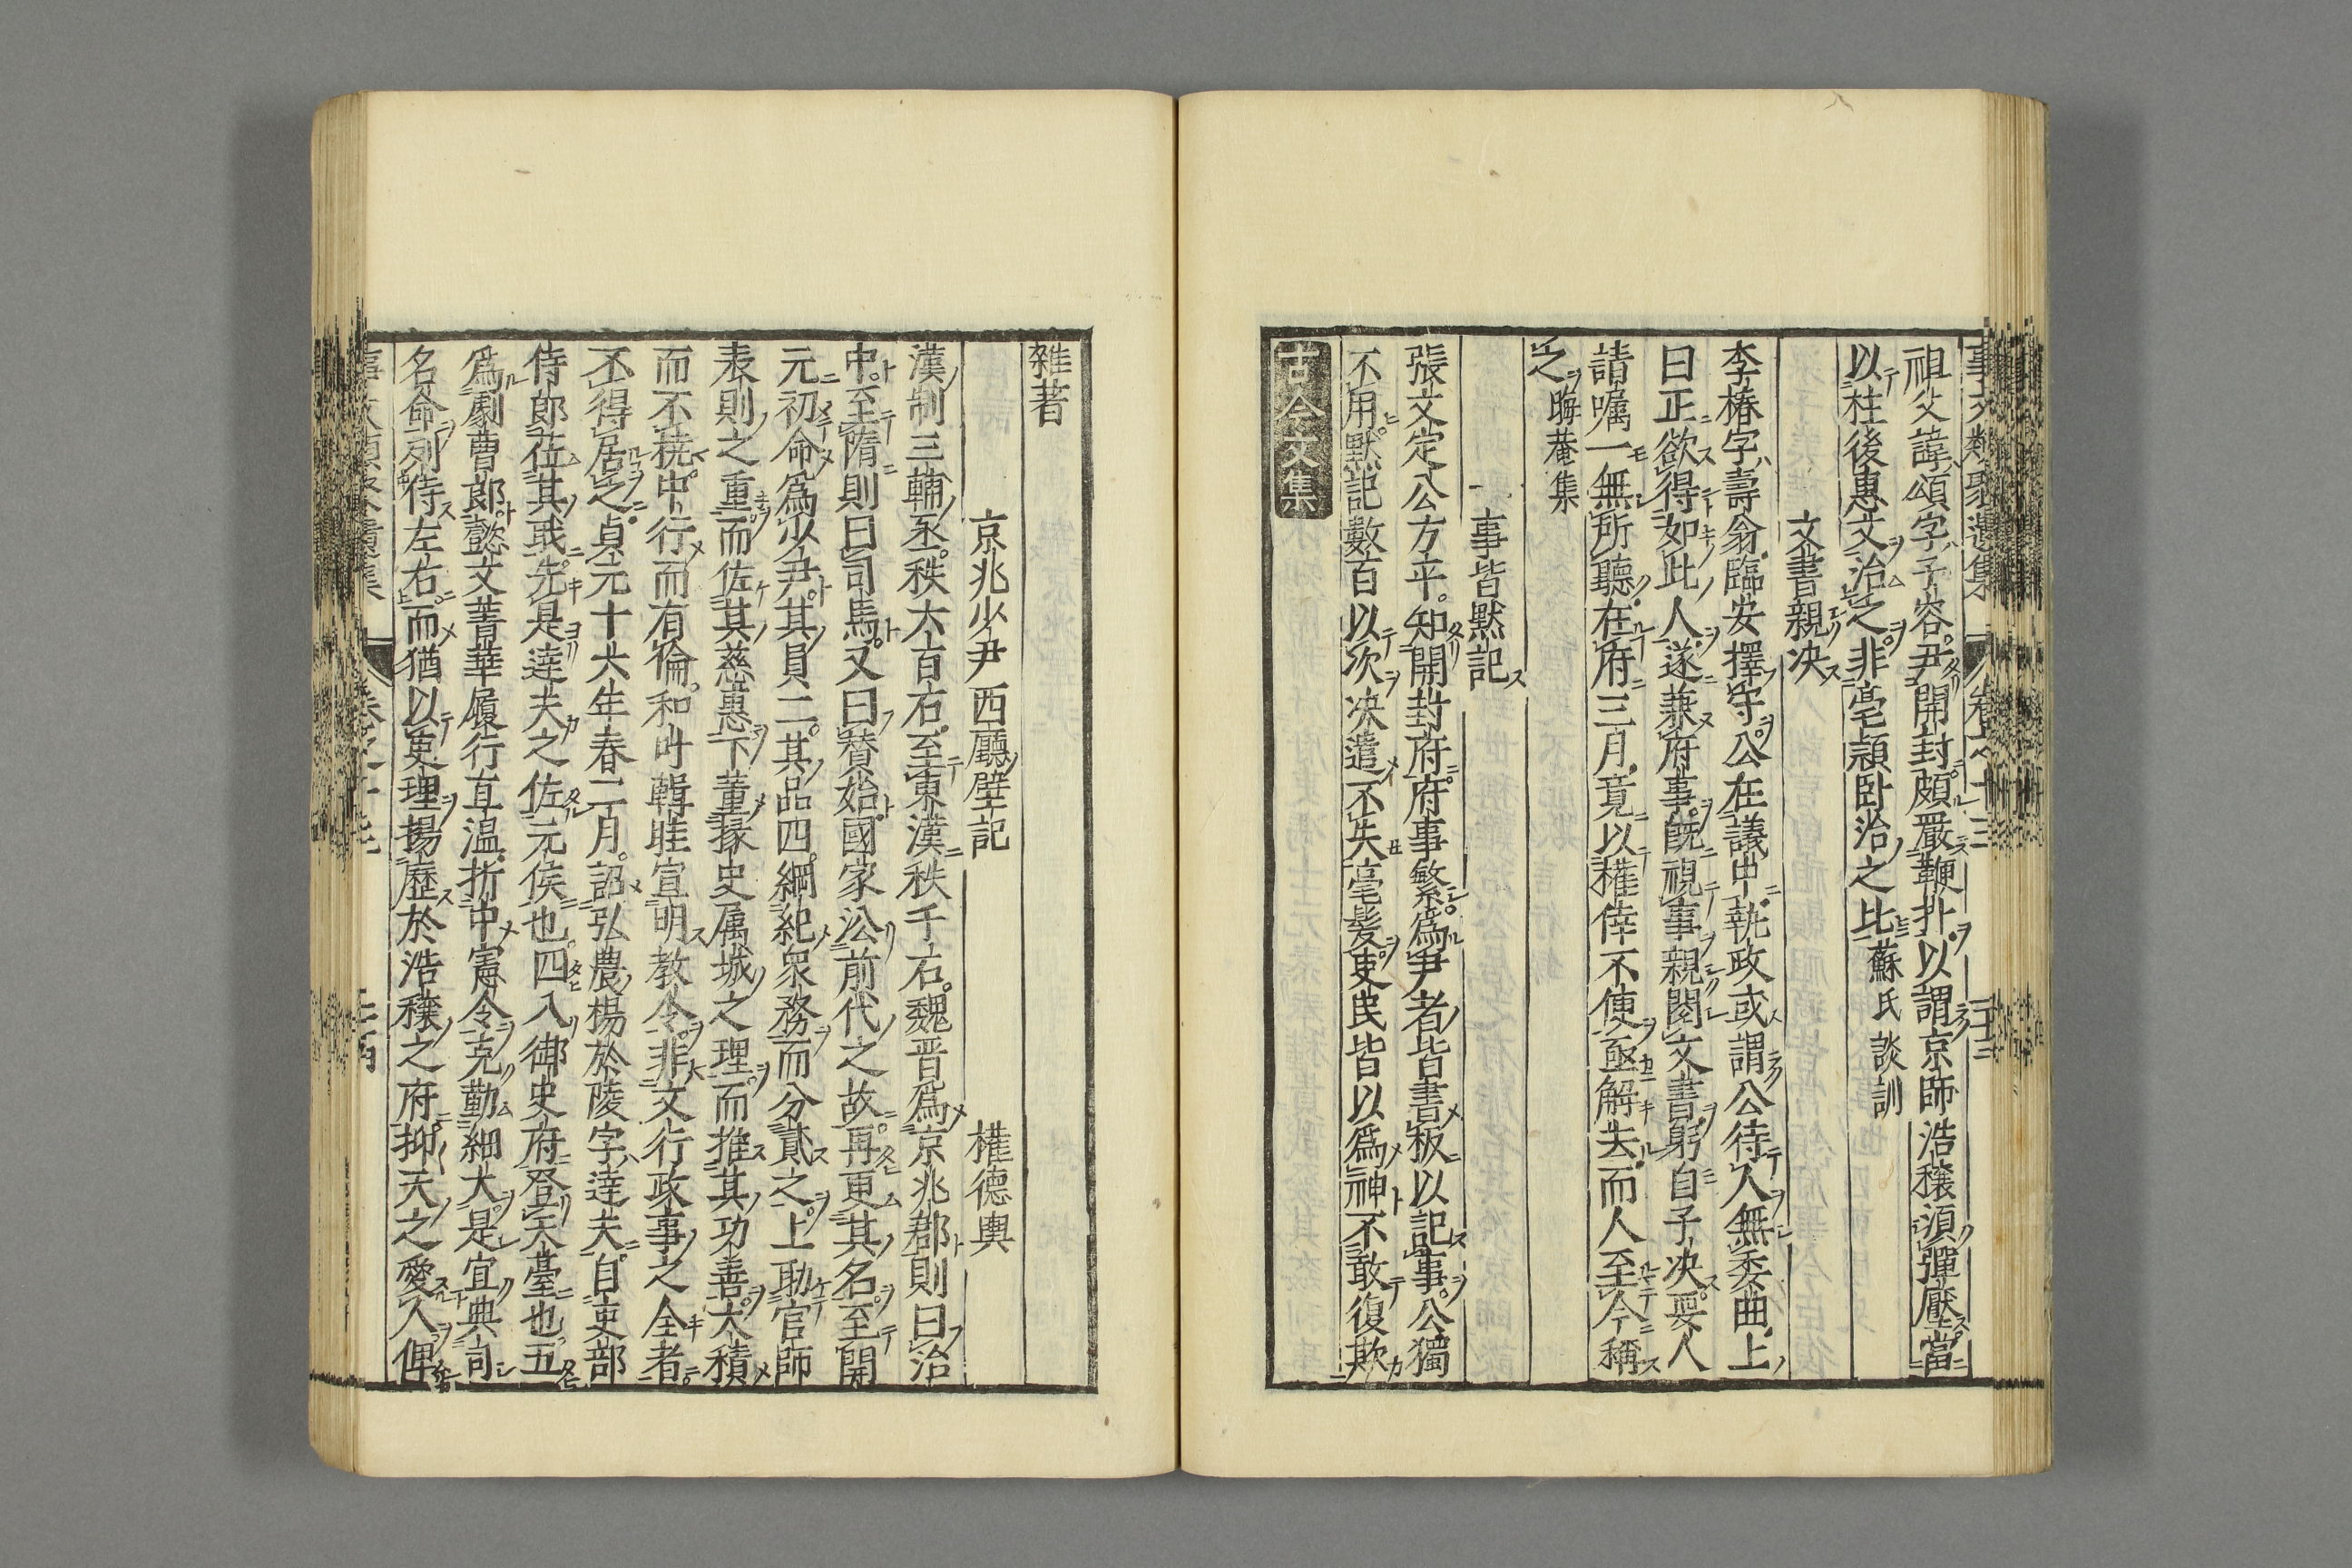 祖父諱頌字子容尹開封頗嚴鞭扑以謂京師浩穰須彈壓當
以柱後惠文治之非亳潁卧治之比蘇氏談訓
文書親决
李椿字壽翁臨安擇守公在議中執政或謂公待人無委曲上
曰正欲得如此人遂兼府事旣視事親閱文書躬自予决要人
請囑一無所聽在府三月竟以權倖不使亟解去而人至今稱
之晦菴集
事皆默記
張文定公方平知開封府府事繁爲尹者皆書板以記事公獨
不用默記數百以次决遣不失毫髮吏民皆以爲神不敢復欺
古今文集
雜著
京兆少尹西廳壁記 權德輿
漢制三輔丞秩六百石至東漢秩千石魏晋爲京兆郡則曰治
中至隋則曰司馬又曰賛始國家㳂前代之故再更其名至開
元初命爲少尹其員二其品四綱紀衆務而分貳之上助官師
表則之重而佐其慈惠下董掾史属城之理而推其功善大積
而不撓中行而有倫和叶輯睦宣明教令非文行政事之全者
不得居之貞元十六年春二月詔弘農楊於陵字達夫自吏部
侍郎莅其戓先是達夫之佐元侯也四入御史府登天臺也五
爲劇曹郎懿文菁華履行直温折中憲令克勤細大是宜典司
名命列侍左右而猶以吏理揚歷於浩穰之府抑天之愛人俾